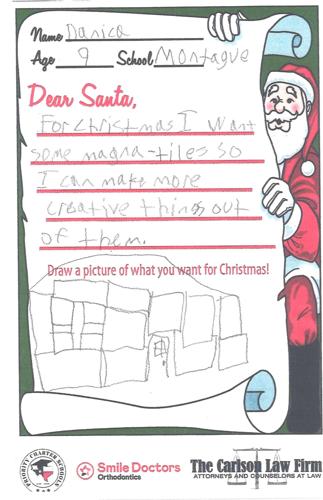 Name Danica
Age 9 School Montague
Dear Santa,
For christmas I want
some magna-tiles so
I can make more
creative things out
of them.
Draw a picture of what you want for Christmas!
PRIORITY CHARTER SCHOOLS
Smile Doctors
Orthodontics
The Carlson Law Firm
ATTORNEYS AND COUNSELORS AT LAW